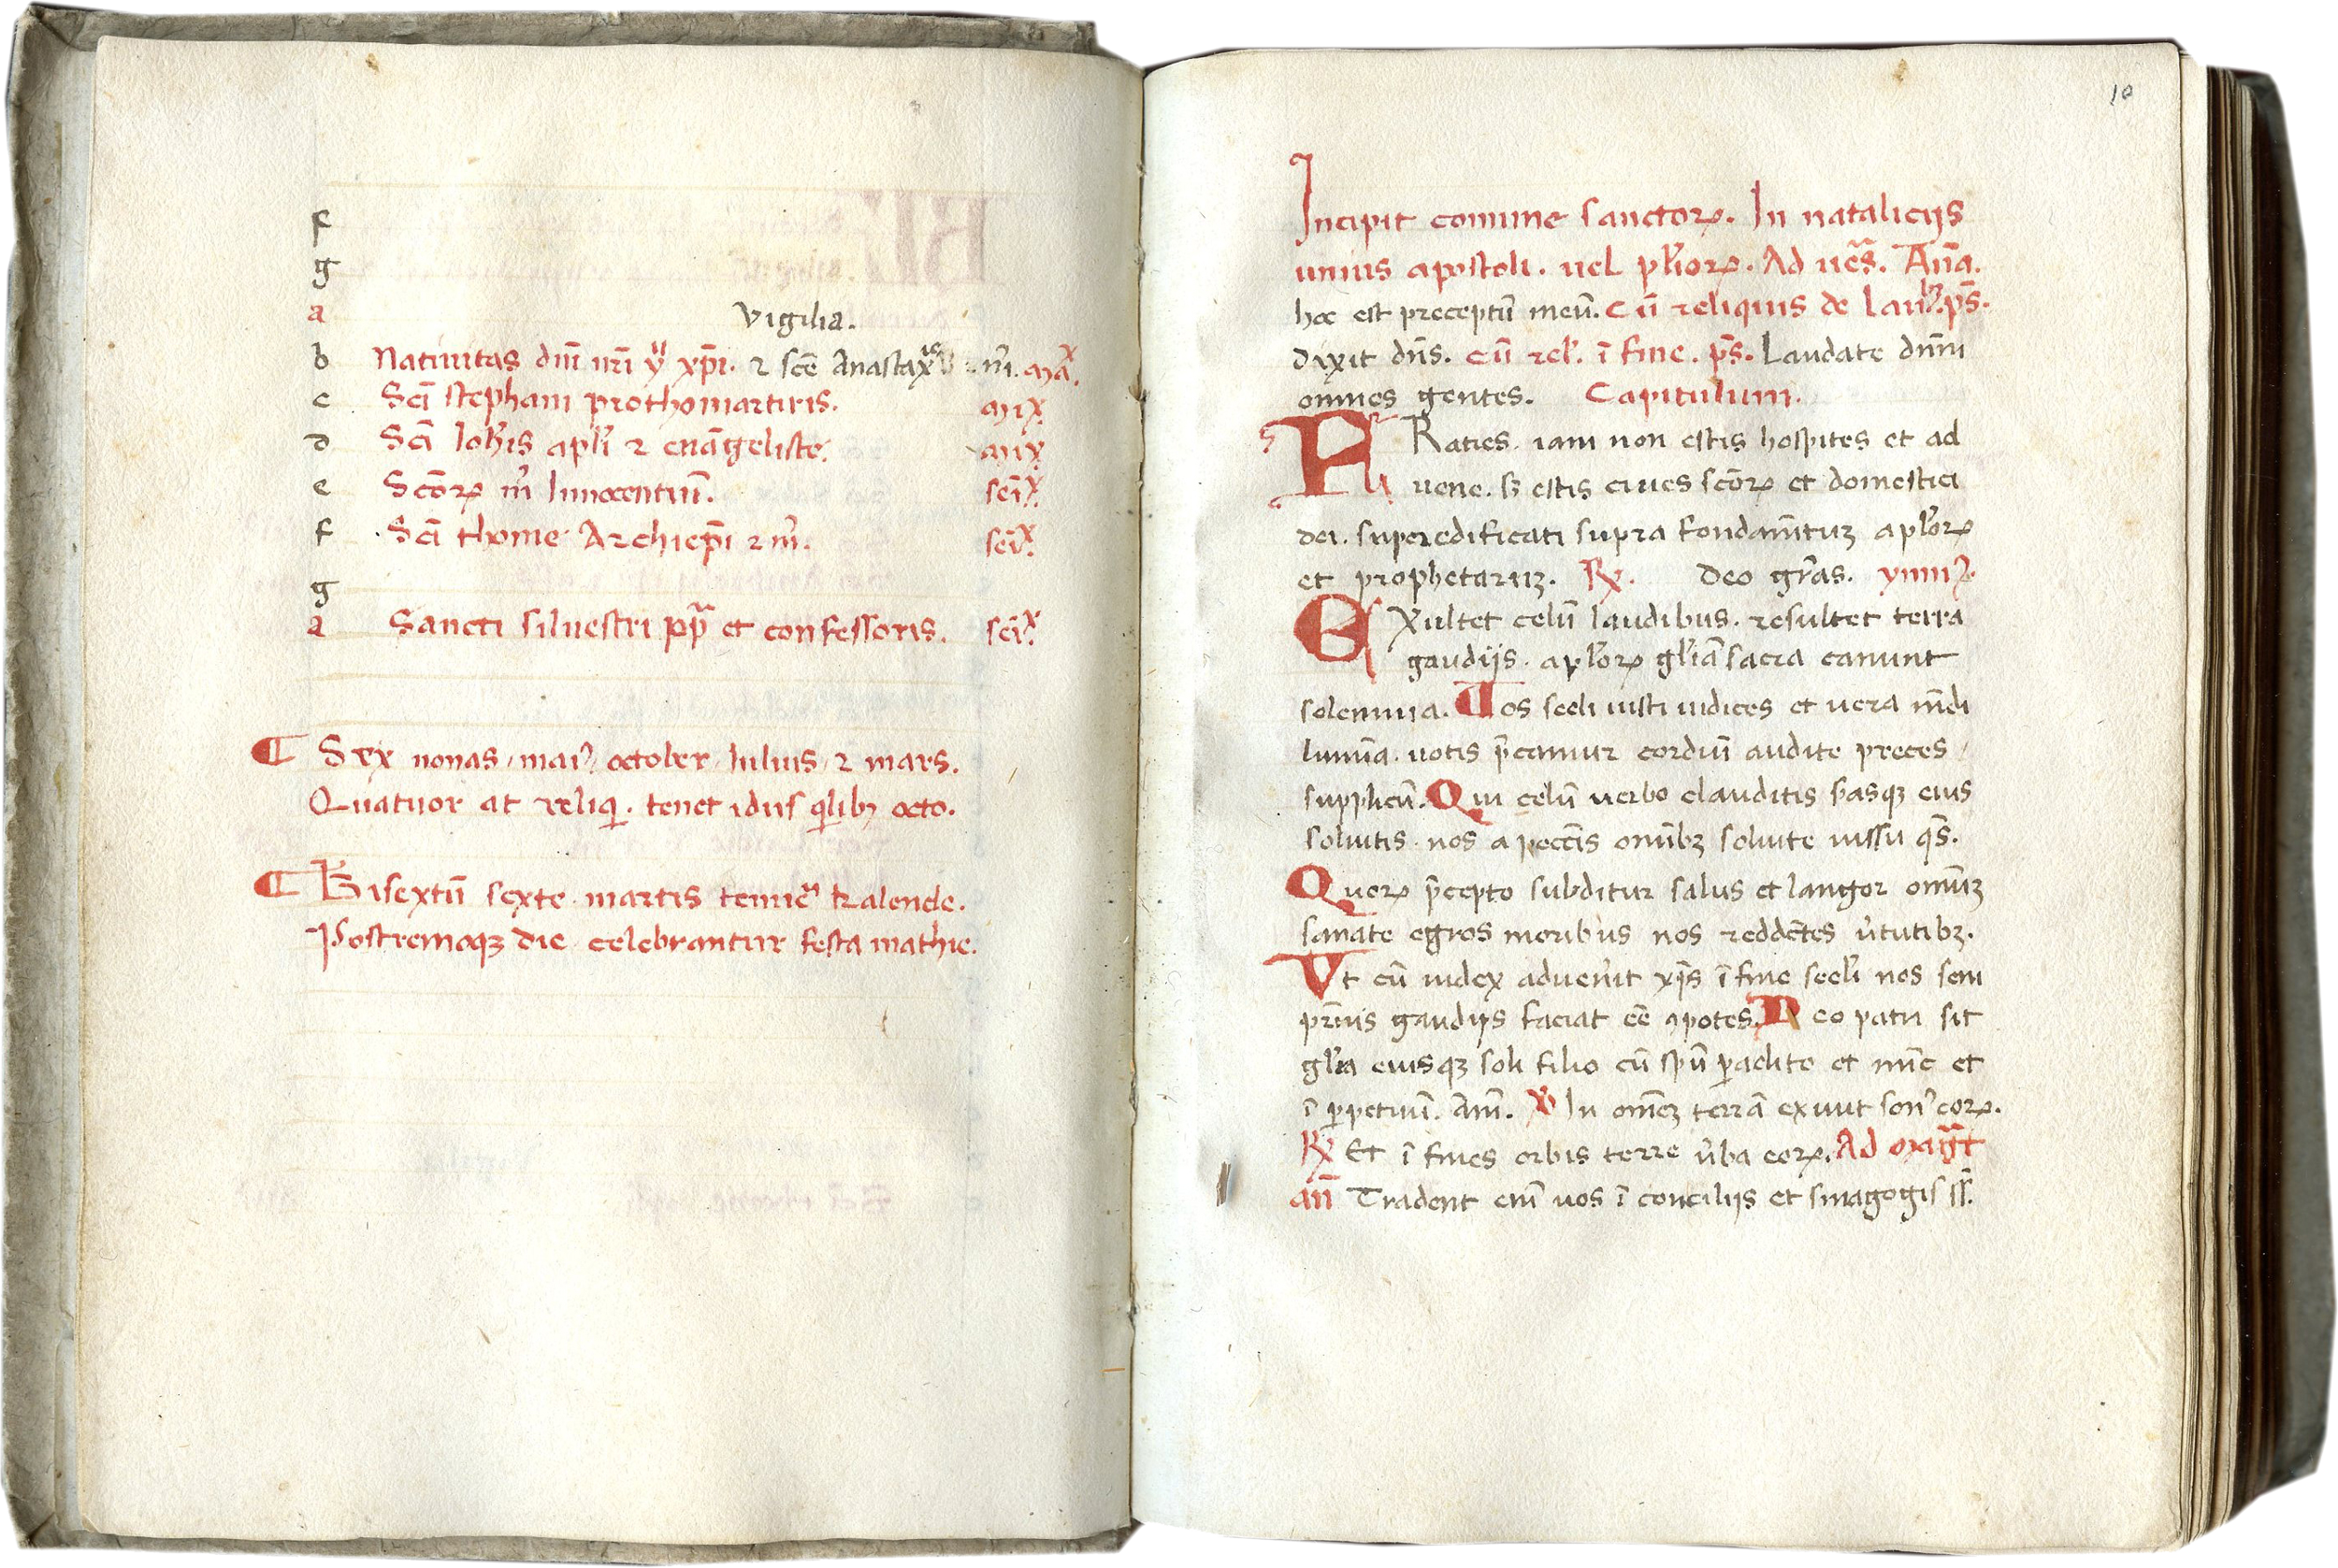 f
g
a Vigilia.
b Natiuitas dn̄i nr̄i yͧ xp̄i. ⁊ scē Anastaxie m̄. max̄.
c Scī stephani prothomartiris. maix
d Scī Ioh̄is apl̄i ⁊ euāgeliste. maix
e Scōꝝ m̄ Innocentiū. sēix.
f Scī thome Archiep̄i ⁊ m̄. sēix.
g
a Sancti siluestri pp̄ et confessoris. sēix.
¶ Sex nonas / mai᾿ / october / Iulius / ⁊ mars.
Quatuor at reliq̨. tenet idus q̄libꝫ octo.
¶ Bisextū sexte martis tenuē kalende.
Postremaqꝫ die celebrantur festa mathie.
10
Incipit comune sanctoꝝ. In nataliciis
unius apostoli. uel pl̄ioꝝ. Ad ues̄. An̄a.
hoc est preceptū meū. Cū reliquis de laudꝫ. ps̄.
Dixit dn̄s. cū rel᾿. ī fine. ps̄. Laudate dn̄m
omnes gentes. Capitulum.
FRatres. iam non estis hospites et ad
uene. sꝫ estis ciues scōꝝ et domestici
dei. superedificati supra fondam̄tuꝫ apl̄oꝝ
et prophetaruꝫ. ℞. Deo gr̄as. ymn᾿.
EXultet celū laudibus. resultet terra
gaudijs. apl̄oꝝ gl̄iā sacra canunt
solemnia. Uos secli iusti iudices et uera mūdi
lumīa. uotis p̄camur cordiū audite preces
supplicū. Qui celū uerbo clauditis s̄rasqꝫ eius
soluitis. nos a peccīs omībꝫ soluite iussu qs̄.
Quoꝝ p̄cepto subditur salus et langor omīuꝫ
sanate egros moribus nos reddētes u᾿tutibꝫ.
Vt cū iudex aduen᾿it xp̄s ī fine secl᾿i nos sem
pit᾿nis gaudijs faciat eē ꝯpotes. Deo patri sit
gl᾿ia eiusqꝫ soli filio cū spū paraclito et nūc et
ī ꝑpetuū. Am̄. ℣ In omēꝫ terrā exiuit son᾿ eoꝝ.
℞ Et ī fines orbis terre u᾿ba eoꝝ. Ad magt̄
an̄ Tradent em̄ uos ī concilijs et sinagogis ss̄.